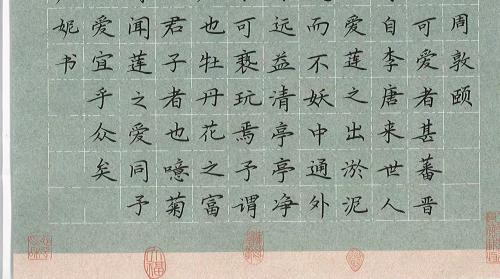 周敦颐
可爱者甚蕃晋
自李唐来世人
爱莲之出淤泥
而不妖中通外
远益清亭亭净
可亵玩焉予谓
也牡丹花之富
君子者也噫菊
闻莲之爱同予
爱宜乎众矣
妮书